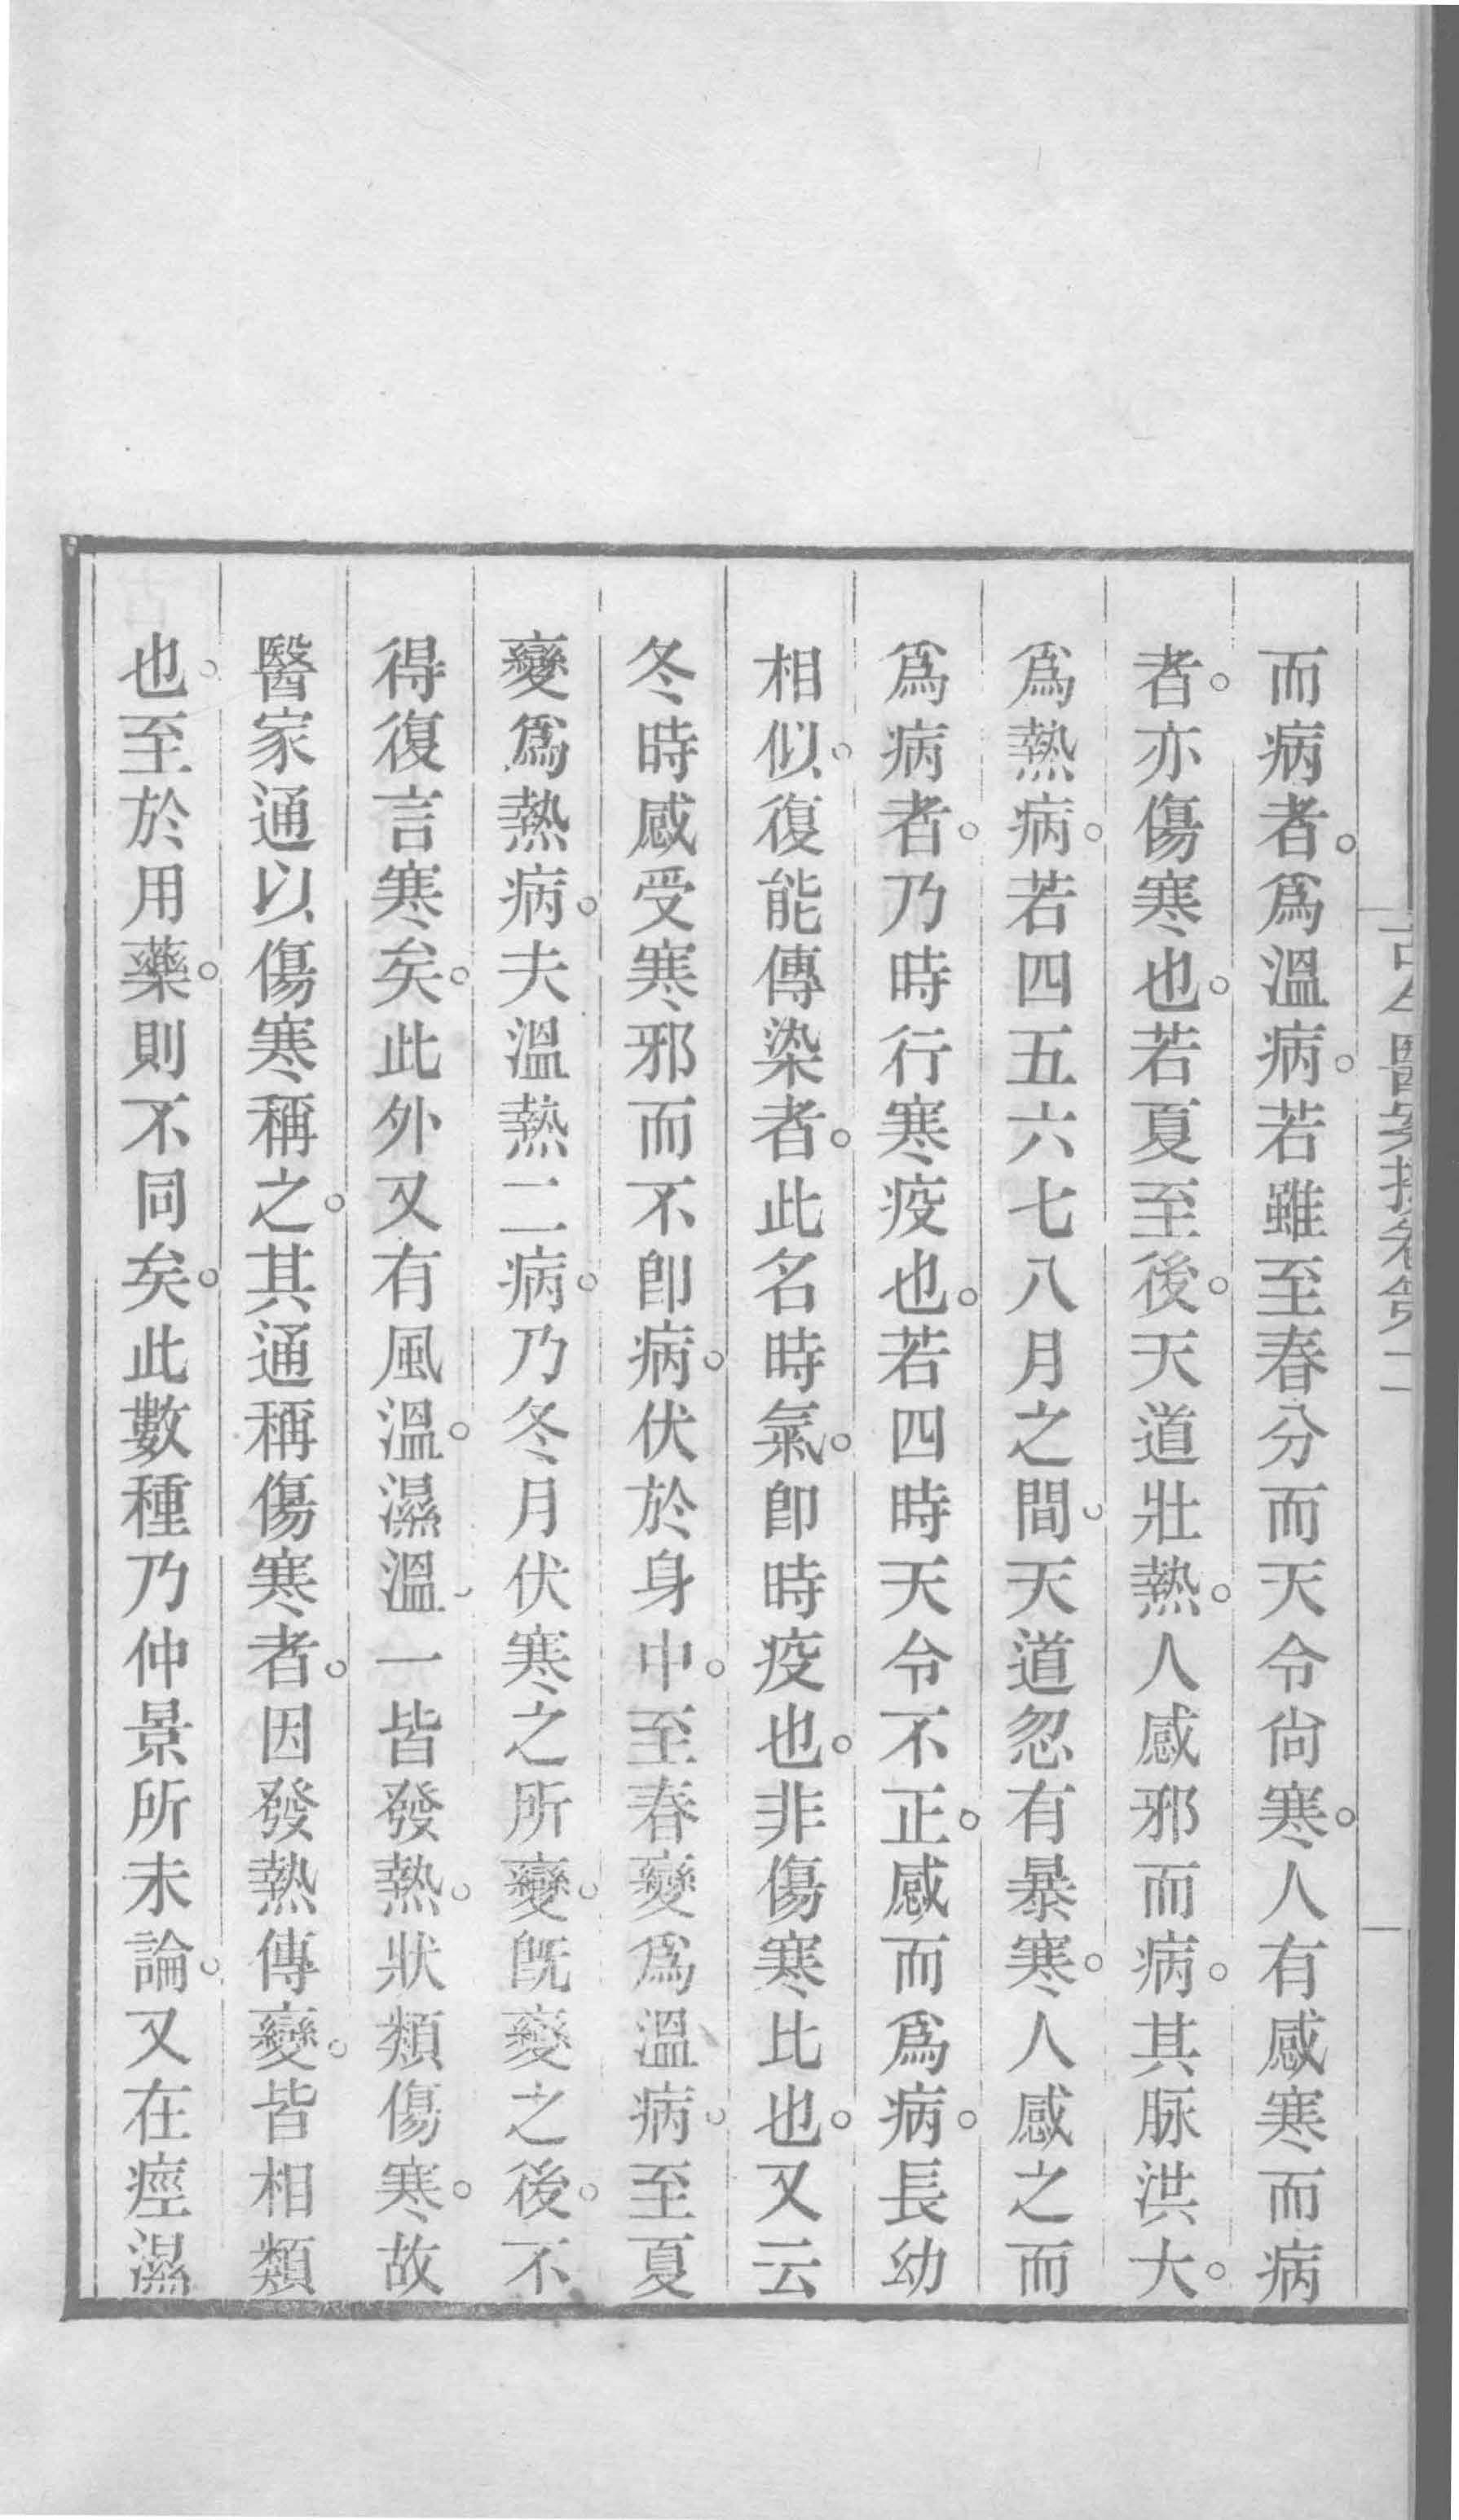 而病者。爲溫病。若雖至春分而天令尙寒。人有感寒而病
者。亦傷寒也。若夏至後。天道壯熱。人感邪而病。其脉洪大。
爲熱病。若四五六七八月之間。天道忽有暴寒。人感之而
爲病者。乃時行寒疫也。若四時天令不正。感而爲病。長幼
相似。復能傳染者。此名時氣。卽時疫也。非傷寒比也。又云
冬時感受寒邪而不卽病。伏於身中。至春變爲溫病。至夏
變爲熱病。夫溫熱二病。乃冬月伏寒之所變。旣變之後。不
得復言寒矣。此外又有風溫。濕溫。一皆發熱。狀類傷寒。故
醫家通以傷寒稱之。其通稱傷寒者。因發熱傳變。皆相類
也。至於用藥。則不同矣。此數種乃仲景所未論。又在痙濕